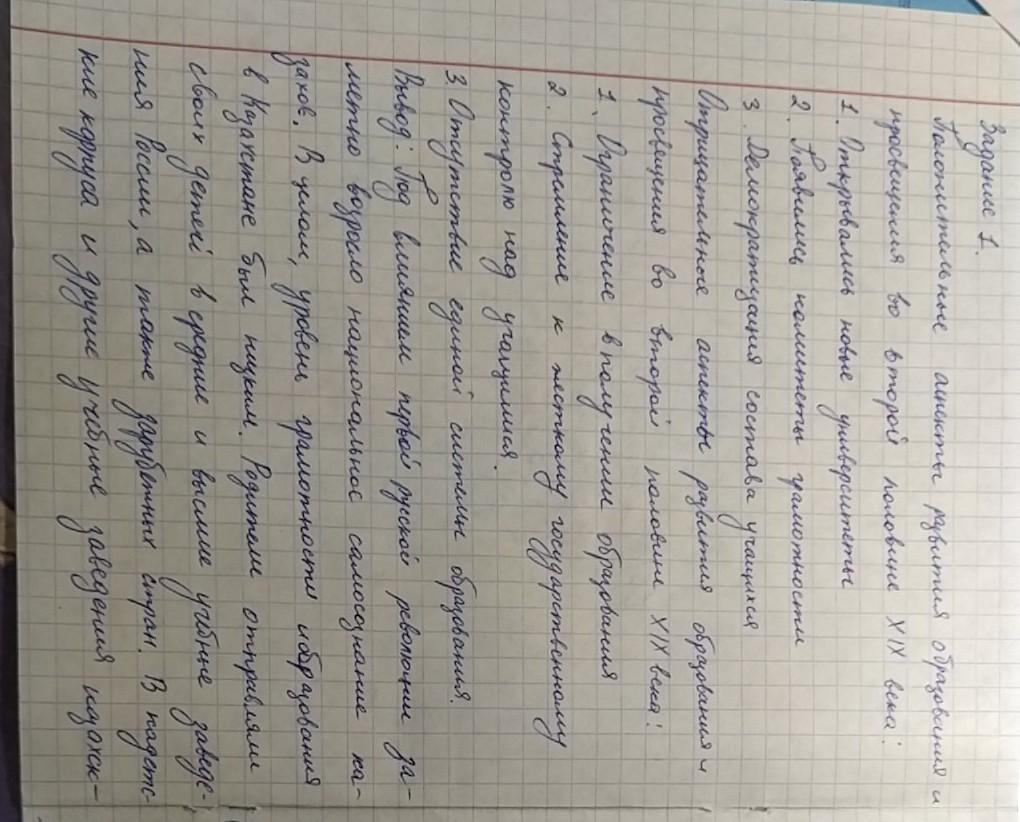 Задание 1.
Положительные аспекты развития образования и
просвещения во второй половине XIX века:
1. Открывались новые университеты
2. Появились комитеты грамотности
3. Демократизация состава учащихся
Отрицательное аспекты развития образования и
просвещения во второй половине XIX века:
1. Ограничение в получении образования
2. Стремление к жесткому государственному
контролю над учащимися.
3. Отсутствие единой системы образования.
Вывод: Под влиянием первой руской революции за-
метно возросло национальное самосознание ка-
захов. В целом, уровень грамотности и образования
в Казахстане был низким. Родители отправляли
своих детей в средние и высшие учебные заведе-
ния России, а также зарубежных стран. В кадетс-
кие корпуса и другие учебные заведения казахск-